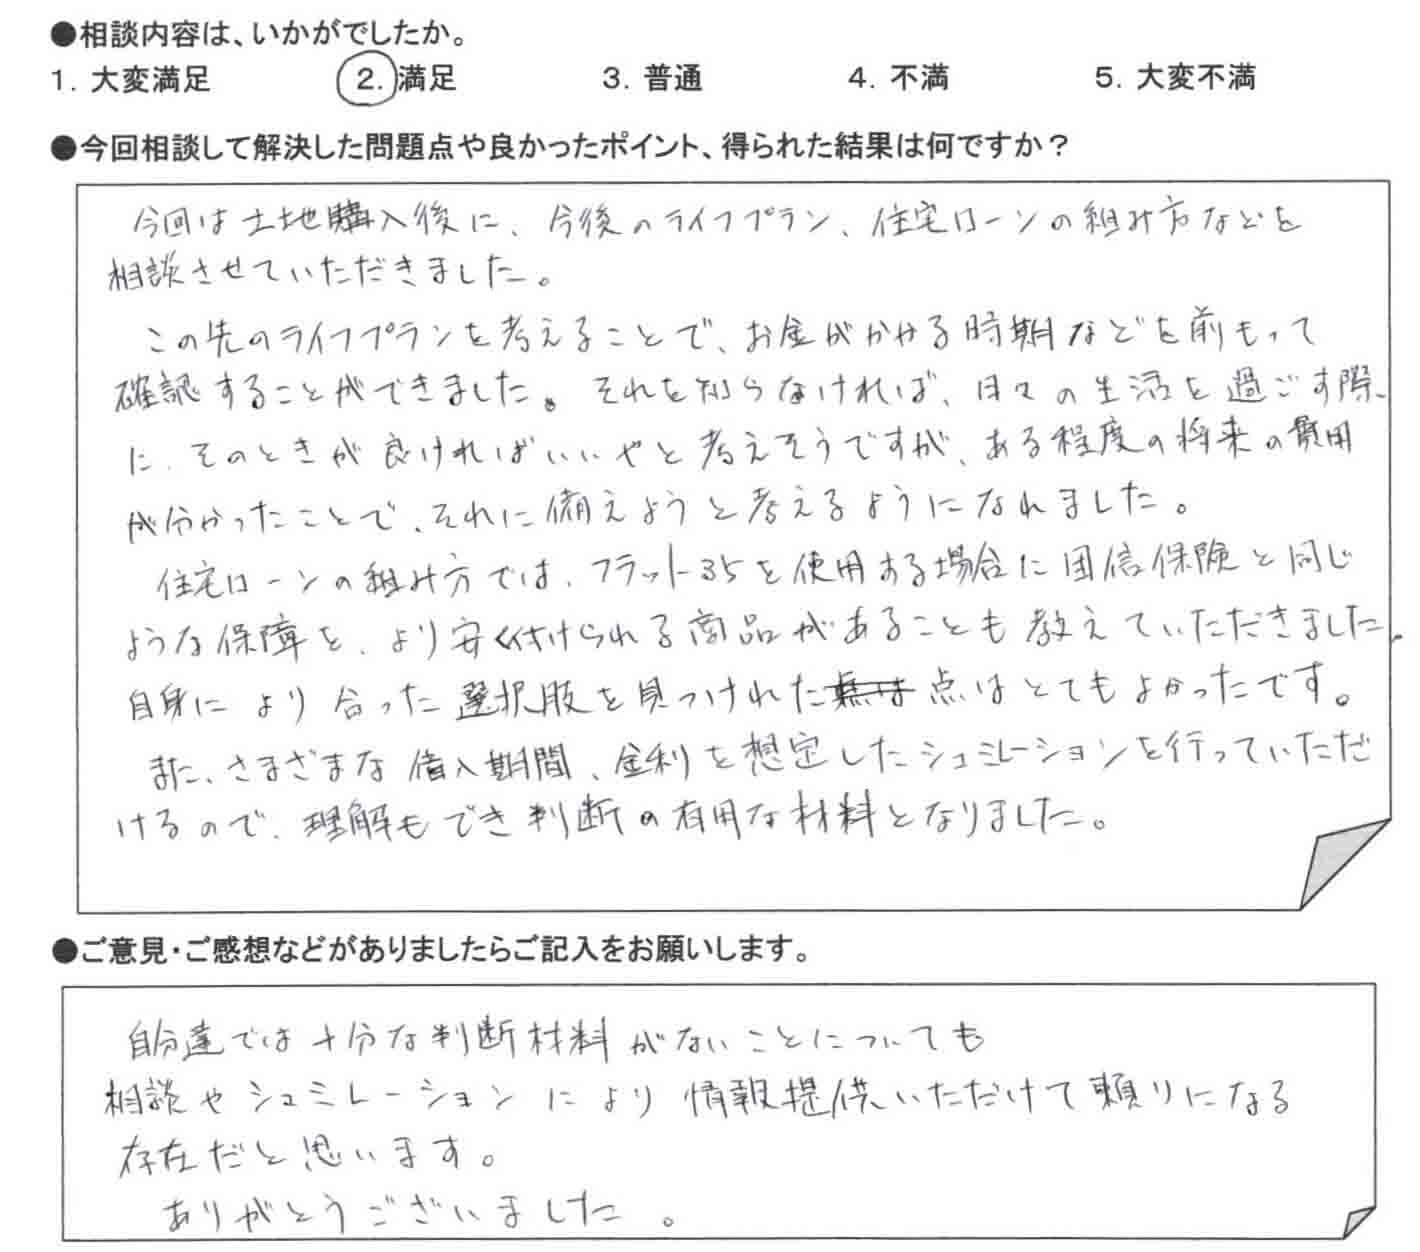 ●相談内容は、いかがでしたか。
1. 大変満足 2. 満足 3. 普通 4. 不満 5. 大変不満
●今回相談して解決した問題点や良かったポイント、得られた結果は何ですか？
今回は土地購入後に、今後のライフプラン、住宅ローンの組み方などを
相談させていただきました。
この先のライフプランを考えることで、お金がかかる時期などを前もって
確認することができました。それを知らなければ、日々の生活を過ごす際
に、そのときが良ければいいやと考えそうですが、ある程度の将来の費用
が分かったことで、それに備えようと考えるようになれました。
住宅ローンの組み方では、フラット35を使用する場合に団信保険と同じ
ような保障を、より安く付けられる商品があることも教えていただきました。
自身により合った選択肢を見つけれた点はとてもよかったです。
また、さまざまな借入期間、金利を想定したシュミレーションを行っていただ
けるので、理解もでき判断の有用な材料となりました。
●ご意見・ご感想などがありましたらご記入をお願いします。
自分達では十分な判断材料がないことについても
相談やシュミレーションにより情報提供いただけて頼りになる
存在だと思います。
ありがとうございました。